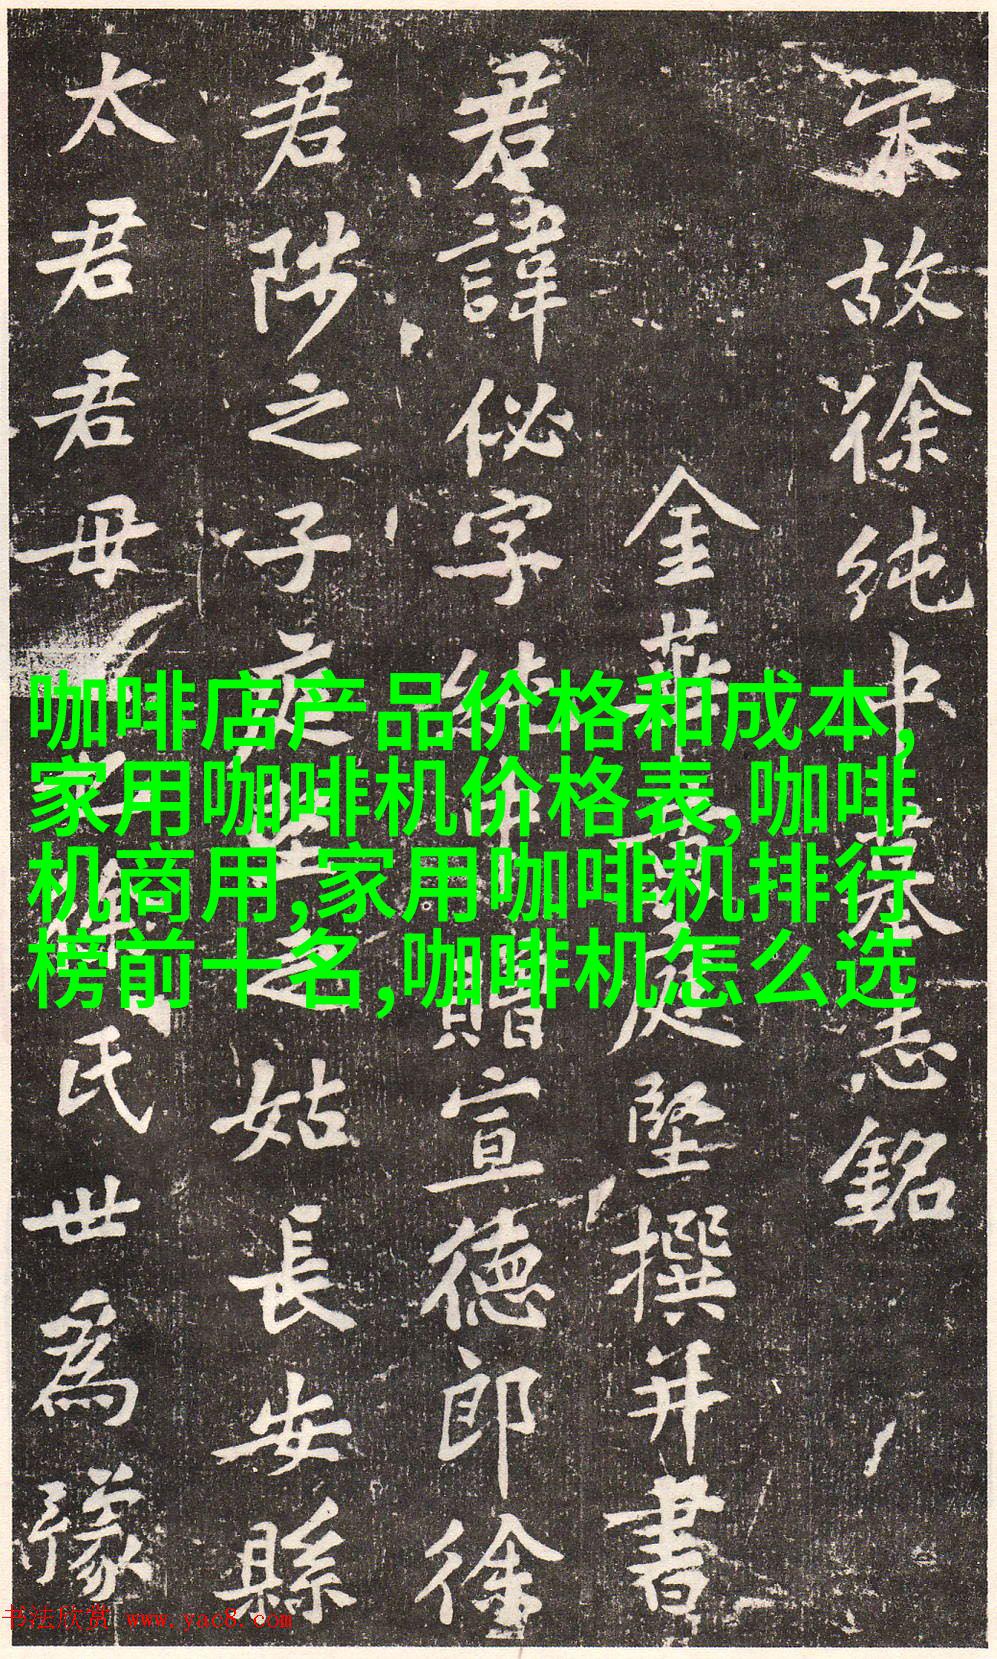 宋故徐純中墓志銘
金華黄庭堅撰并書
君諱佖字純中贈宣德郎徐
君陟之子庭堅之姑長安縣
太君君母氏世為豫
咖啡店产品价格和成本,
家用咖啡机价格表,咖啡
机商用,家用咖啡机排行
榜前十名,咖啡机怎么选
书法欣赏 www.yac8.com